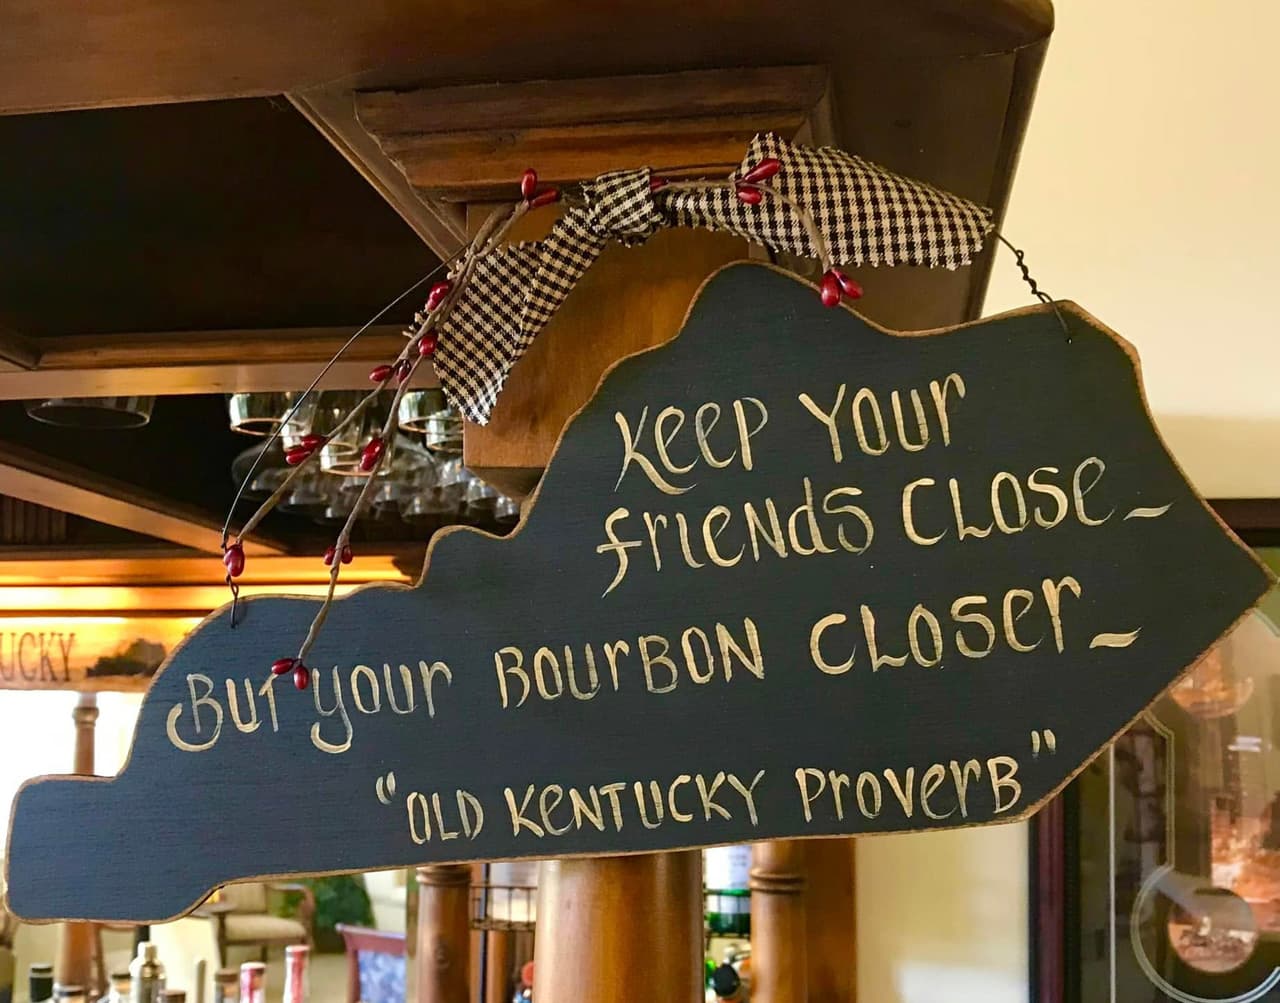 Keep Your
friends Close~
But your Bourbon Closer~
"Old Kentucky Proverb"
UCKY